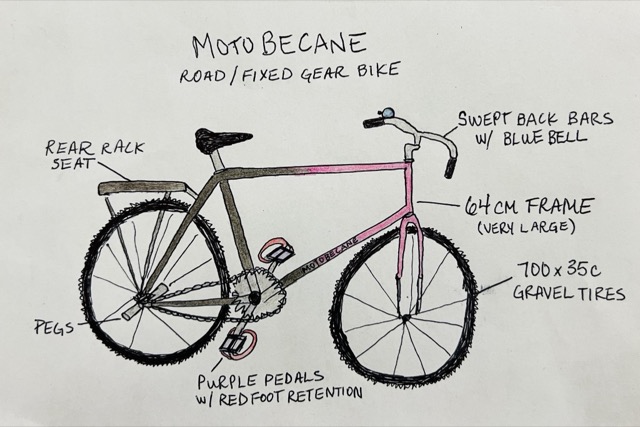 MOTOBECANE
ROAD/FIXED GEAR BIKE
SWEPT BACK BARS
W/ BLUE BELL
REAR RACK
SEAT
64CM FRAME
(VERY LARGE)
MOTOBECANE
700 x 35c
GRAVEL TIRES
PEGS
PURPLE PEDALS
W/ RED FOOT RETENTION